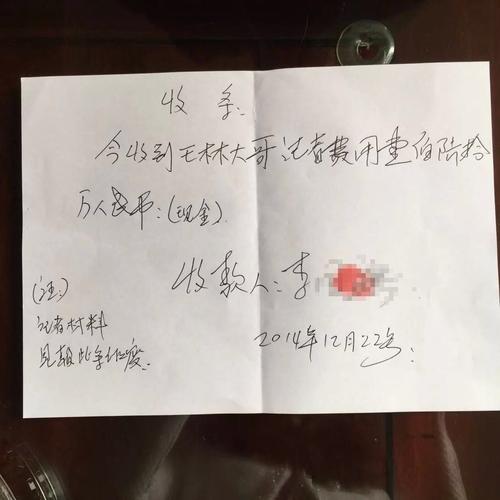 收条:
今收到王林大哥记者费用壹佰陆拾
万人民币:(现金)
收款人:李
2014年12月22号:
(注:)
记者材料
见